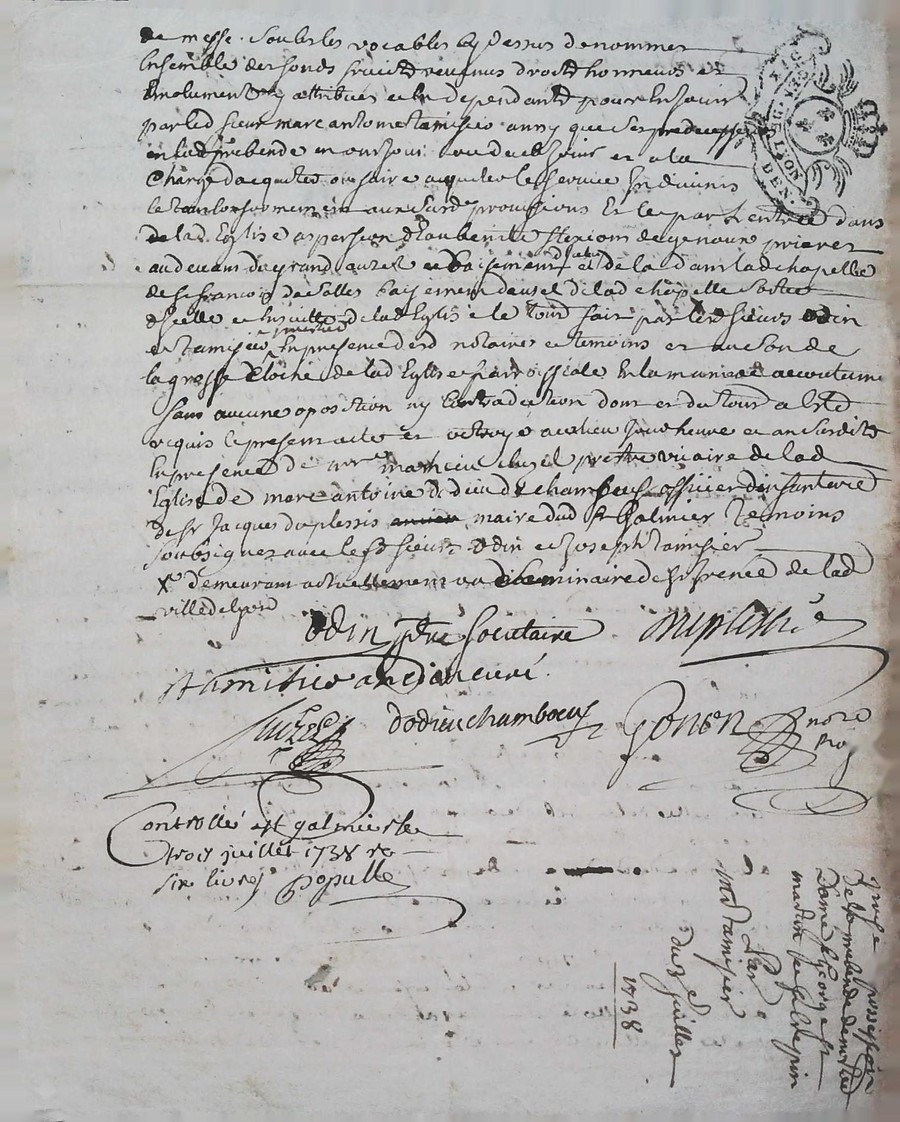 de messe. Soubs les vocables cy dessus denommes
Ensemble des fonds fruicts revenus droits honneurs et
Emoluments y attribues et en dependants pour En jouir
par led sieur marc antoine tamisier ainsy que Ses predecesseurs
en lad prebende en ont joui ou deub jouir et a la
Charge dacquiter ou faire acquiter le Service En divinis
le tout conformement aux Susd provisions Et ce par Lentrée dans
de lad Eglise aspersion dEau benite flexions de genoux prieres
au devant du grand autel et baisement dicelui et de la dans lad chapelle
de St francois de Salles baisement dautel de lad chapelle Sortie
dicelle et Ensuitte de lad Eglise le tout fait par lesd sieurs Odin
et tamisier En presence desd notaires et temoins et au Son de
la grosse Cloche de lad Eglise parroissiale En la maniere accoutumé
Sans aucune oposition ny Contradiction dont et du tout a Esté
requis le present acte et octroyé au lieu jour heure et an Susdits
En presence de mathieu pretre vicaire de lad
Eglise de marc antoine dodieu de chambœuf officier dinfanterie
de Sr Jacques duplessis maire dud St Galmier Temoins
Soubsignez avec lesd sieurs Odin et Joseph tamisier
demeurant actuellement au Seminaire de St Irenée de lad
ville de lyon
Odin ptre Societaire Duplessis
tamisier ancien curé
dodieu chambœuf Gonon nore
roy
Controllé a St galmier le
trois juillet 1738 re
six livres Populle
prise possession
de la prebende de notre
Dame St George St
martin
Par
mre tamisier
du 3e juillet
1738
DEN.